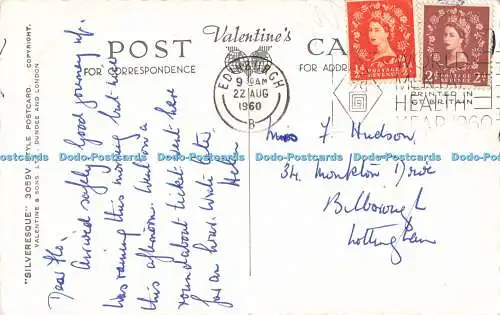 POST
Valentine's
CA
FOR CORRESPONDENCE
FOR ADDRE
EDINBURGH
9 15AM
22 AUG
1960
B
WORLD
ME
HEA
YEAR 1960
PRINTED IN
GT. BRITAIN
"SILVERESQUE" 3059V. STYLE POSTCARD. COPYRIGHT.
VALENTINE & SONS LTD. DUNDEE AND LONDON
Dear Flo,
Arrived safely. Good journey up.
Was raining this morning but nice
this afternoon. Went on a
round about ticket went here
for an hour. Write later.
Helen
Miss F Hudson,
34, Monkton Drive
Bilborough
Nottingham
Dodo-Postcards Dodo-Postcards Dodo-Postcards Dodo-Postcards Dodo-Postcards